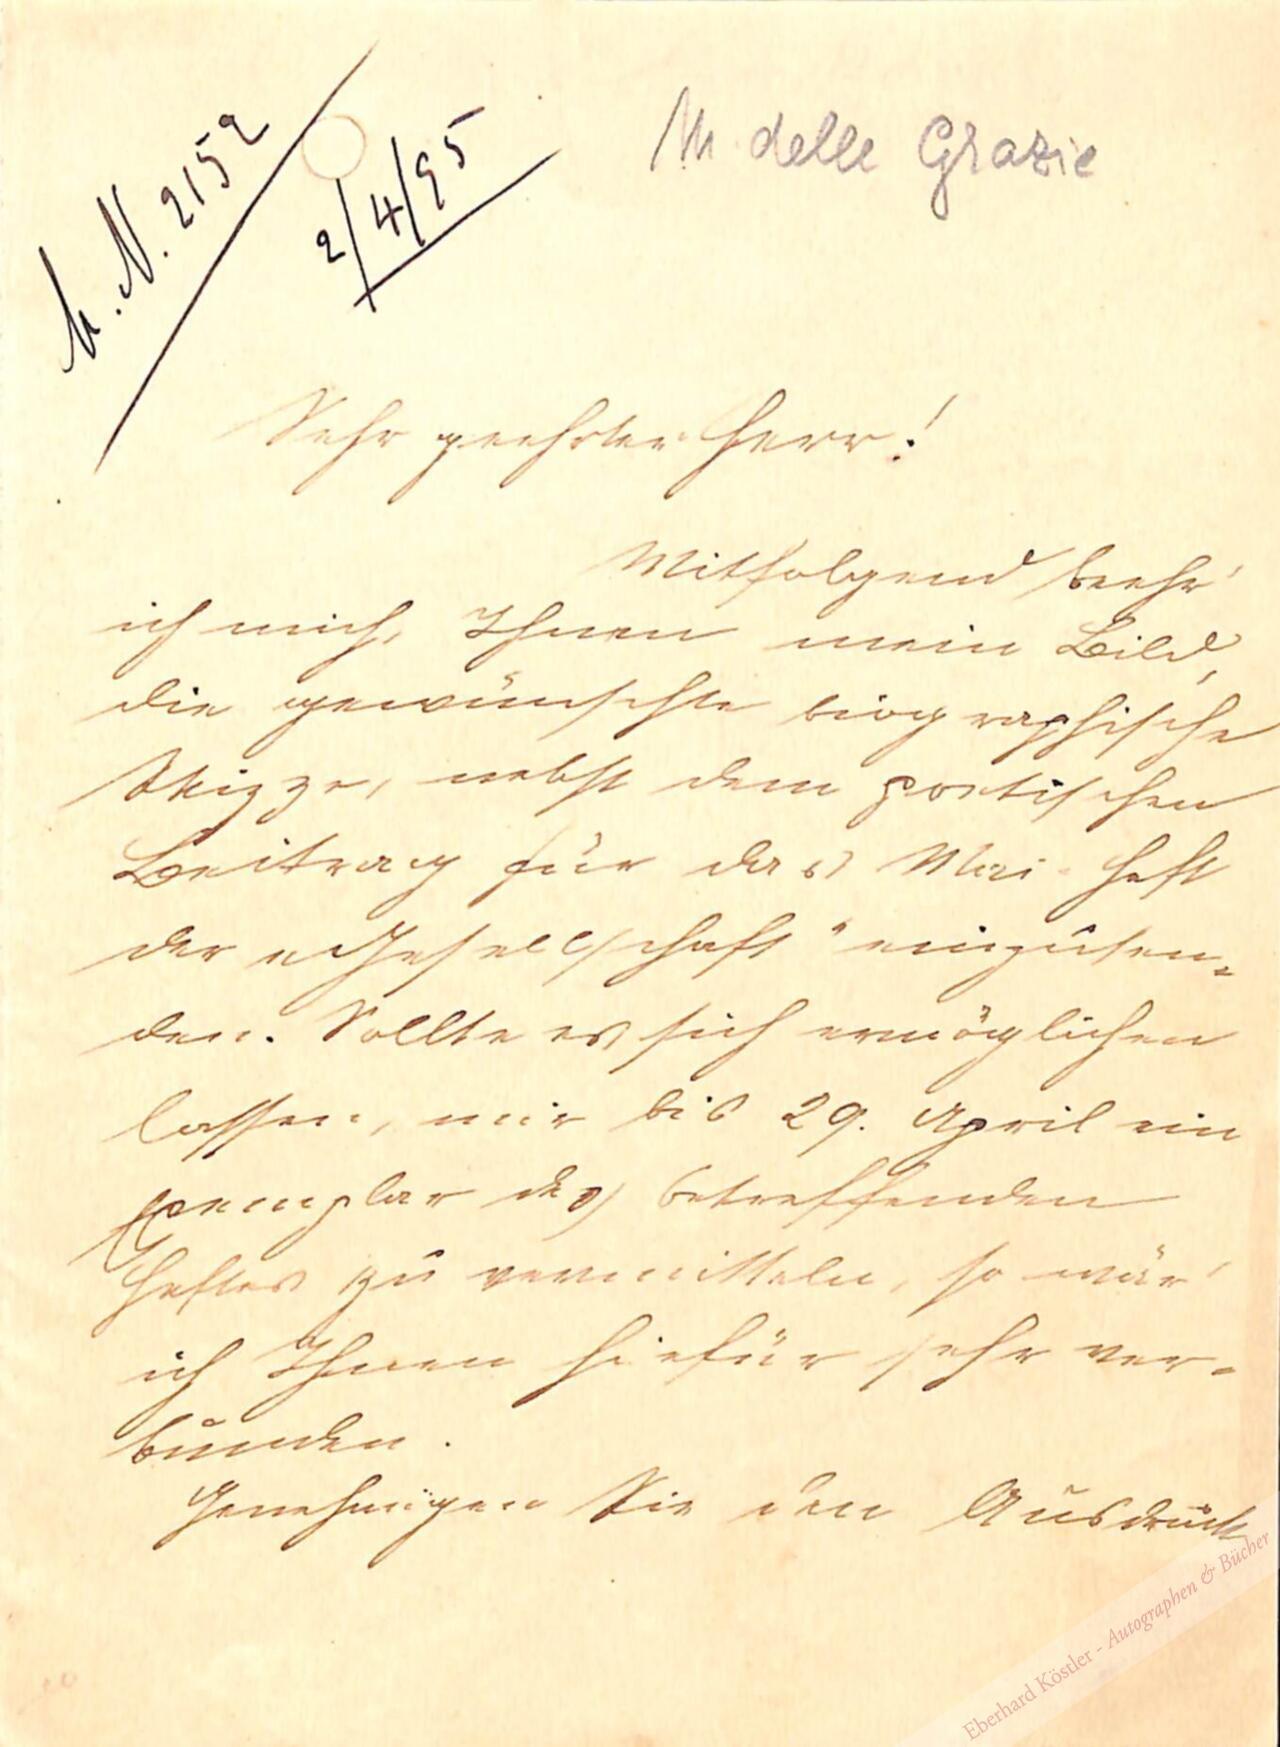 M. N. 2152
2/4/95
M delle Grazie
Sehr geehrter Herr!
Mitfolgend beehr'
ich mich, Ihnen mein Bild,
die gewünschte biographische
Skizze, nebst dem poetischen
Beitrag für das Mai-Heft
der „Gesellschaft" einzusen-
den. Sollte es sich ermöglichen
lassen, mir bis 29. April ein
Exemplar des betreffenden
Heftes zu vermitteln, so wär'
ich Ihnen hiefür sehr ver-
bunden.
Genehmigen Sie den Ausdruck
Eberhard Köstler - Autographen & Bücher